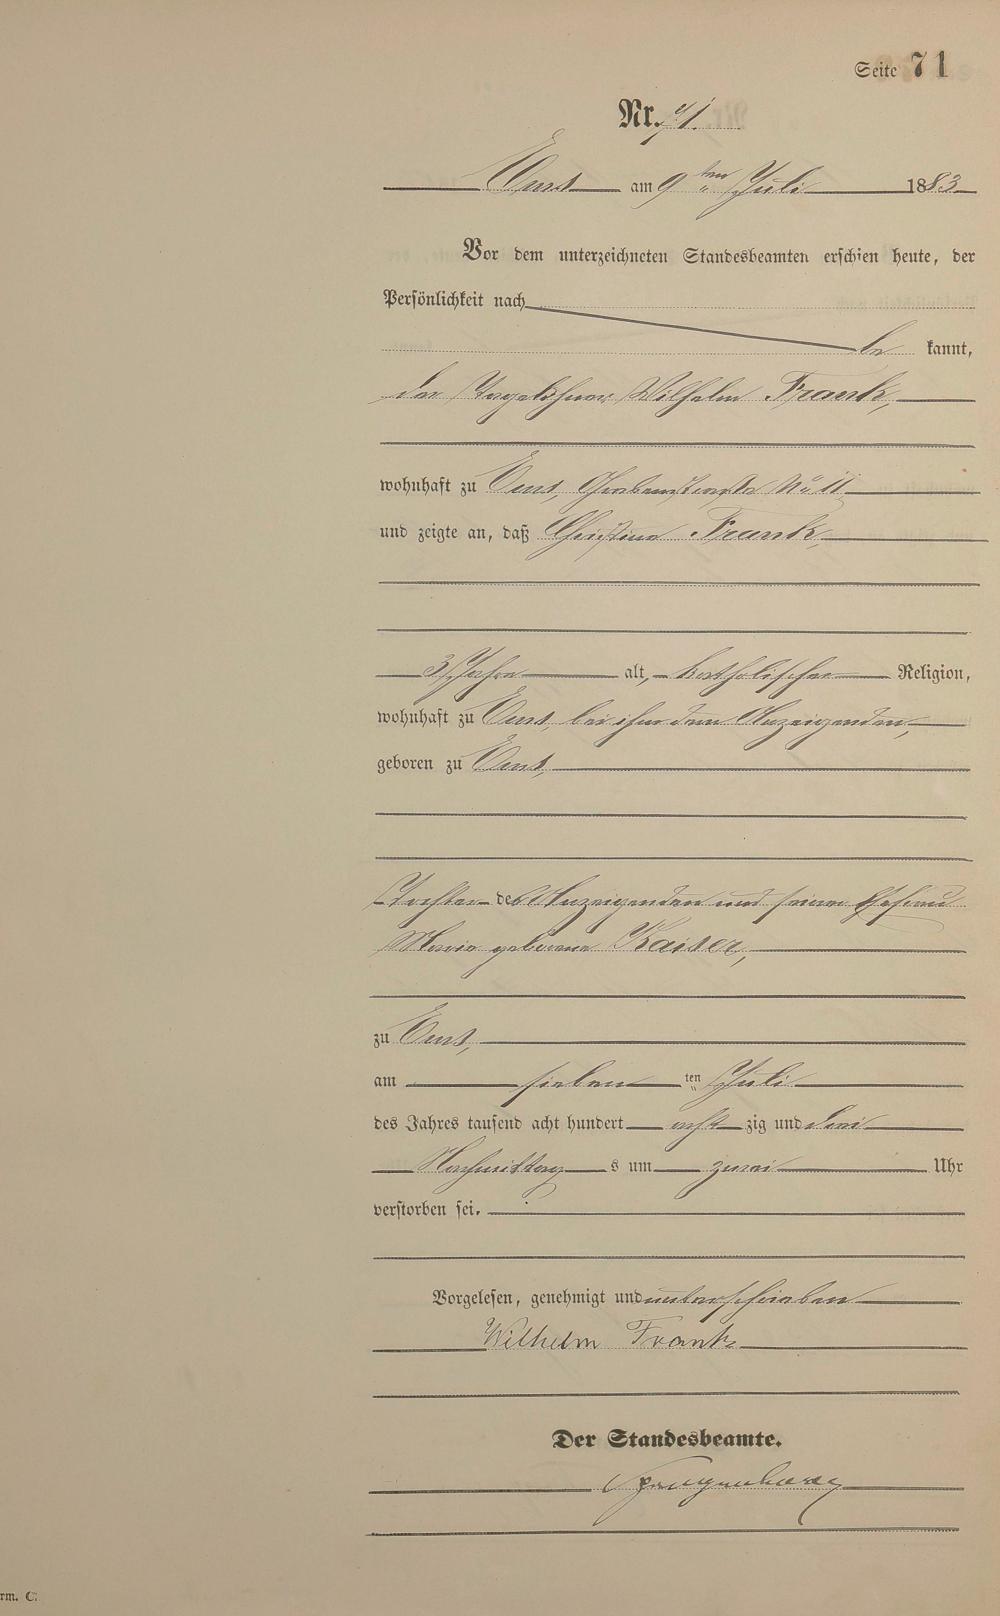 Seite 71
Nr. 71.
Ems am 9ten Juli 1883
Vor dem unterzeichneten Standesbeamten erschien heute, der
Persönlichkeit nach
be kannt,
der Tagelöhner Wilhelm Frank,
wohnhaft zu Ems, Grabenstraße No 11
und zeigte an, daß Christine Frank,
3 Jahre alt, katholischer Religion,
wohnhaft zu Ems, bei ihm dem Anzeigenden,
geboren zu Ems,
Tochter des Anzeigenden und seiner Ehefrau
Maria geborene Kaiser,
zu Ems,
am sieben ten Juli
des Jahres tausend acht hundert acht zig und drei
Nachmittag s um zwei Uhr
verstorben sei.
Vorgelesen, genehmigt und unterschrieben
Wilhelm Frank
Der Standesbeamte.
rm. C.